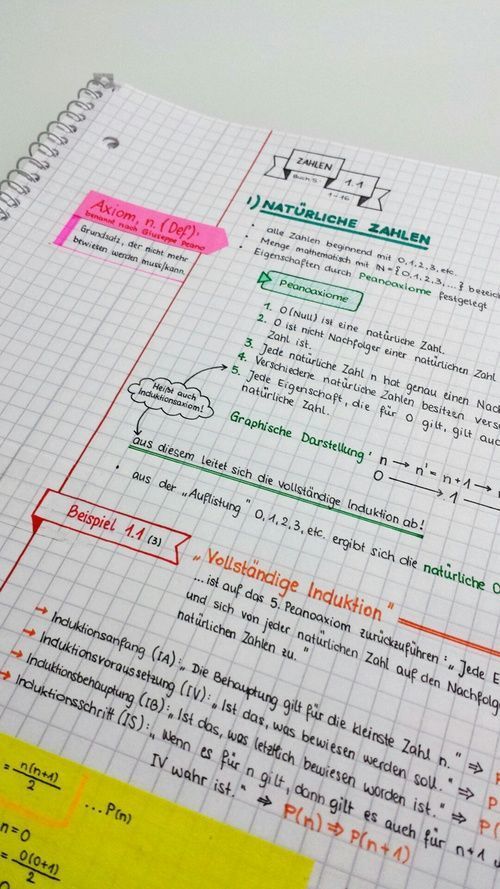 ZAHLEN
Buch S.
1.1
1-16
1) NATÜRLICHE ZAHLEN
• alle Zahlen beginnend mit 0,1,2,3, etc.
• Menge mathematisch mit ℕ = {0,1,2,3,...} bezeic
• Eigenschaften durch Peanoaxiome festgelegt
Axiom, n. (Def),
benannt nach Giuseppe Peano
Grundsatz, der nicht mehr
bewiesen werden muss/kann.
Peanoaxiome
1. 0 (Null) ist eine natürliche Zahl.
2. 0 ist nicht Nachfolger einer natürlichen Zahl
Zahl ist.
3. Jede natürliche Zahl n hat genau einen Nac
4. Verschiedene natürliche Zahlen besitzen vers
5. Jede Eigenschaft, die für 0 gilt, gilt auc
natürliche Zahl.
Heißt auch
Induktionsaxiom!
Graphische Darstellung: n → n' = n+1 → n
0 → 1
aus diesem leitet sich die vollständige Induktion ab!
• aus der „Auflistung" 0,1,2,3, etc. ergibt sich die natürliche O
Beispiel 1.1 (3)
„Vollständige Induktion"
... ist auf das 5. Peanoaxiom zurückzuführen: „Jede E
und sich von jeder natürlichen Zahl auf den Nachfolge
natürlichen Zahlen zu."
→ Induktionsanfang (IA): „Die Behauptung gilt für die kleinste Zahl n." ⇒
→ Induktionsvoraussetzung (IV): „Ist das, was bewiesen werden soll." ⇒ P
→ Induktionsbehauptung (IB): „Ist das, was letztlich bewiesen worden ist." ⇒ P(
→ Induktionsschritt (IS): „Wenn es für n gilt, dann gilt es auch für n+1 u
IV wahr ist." ⇒ P(n) ⇒ P(n+1)
= n(n+1)/2 ... P(n)
n=0
= 0(0+1)/2